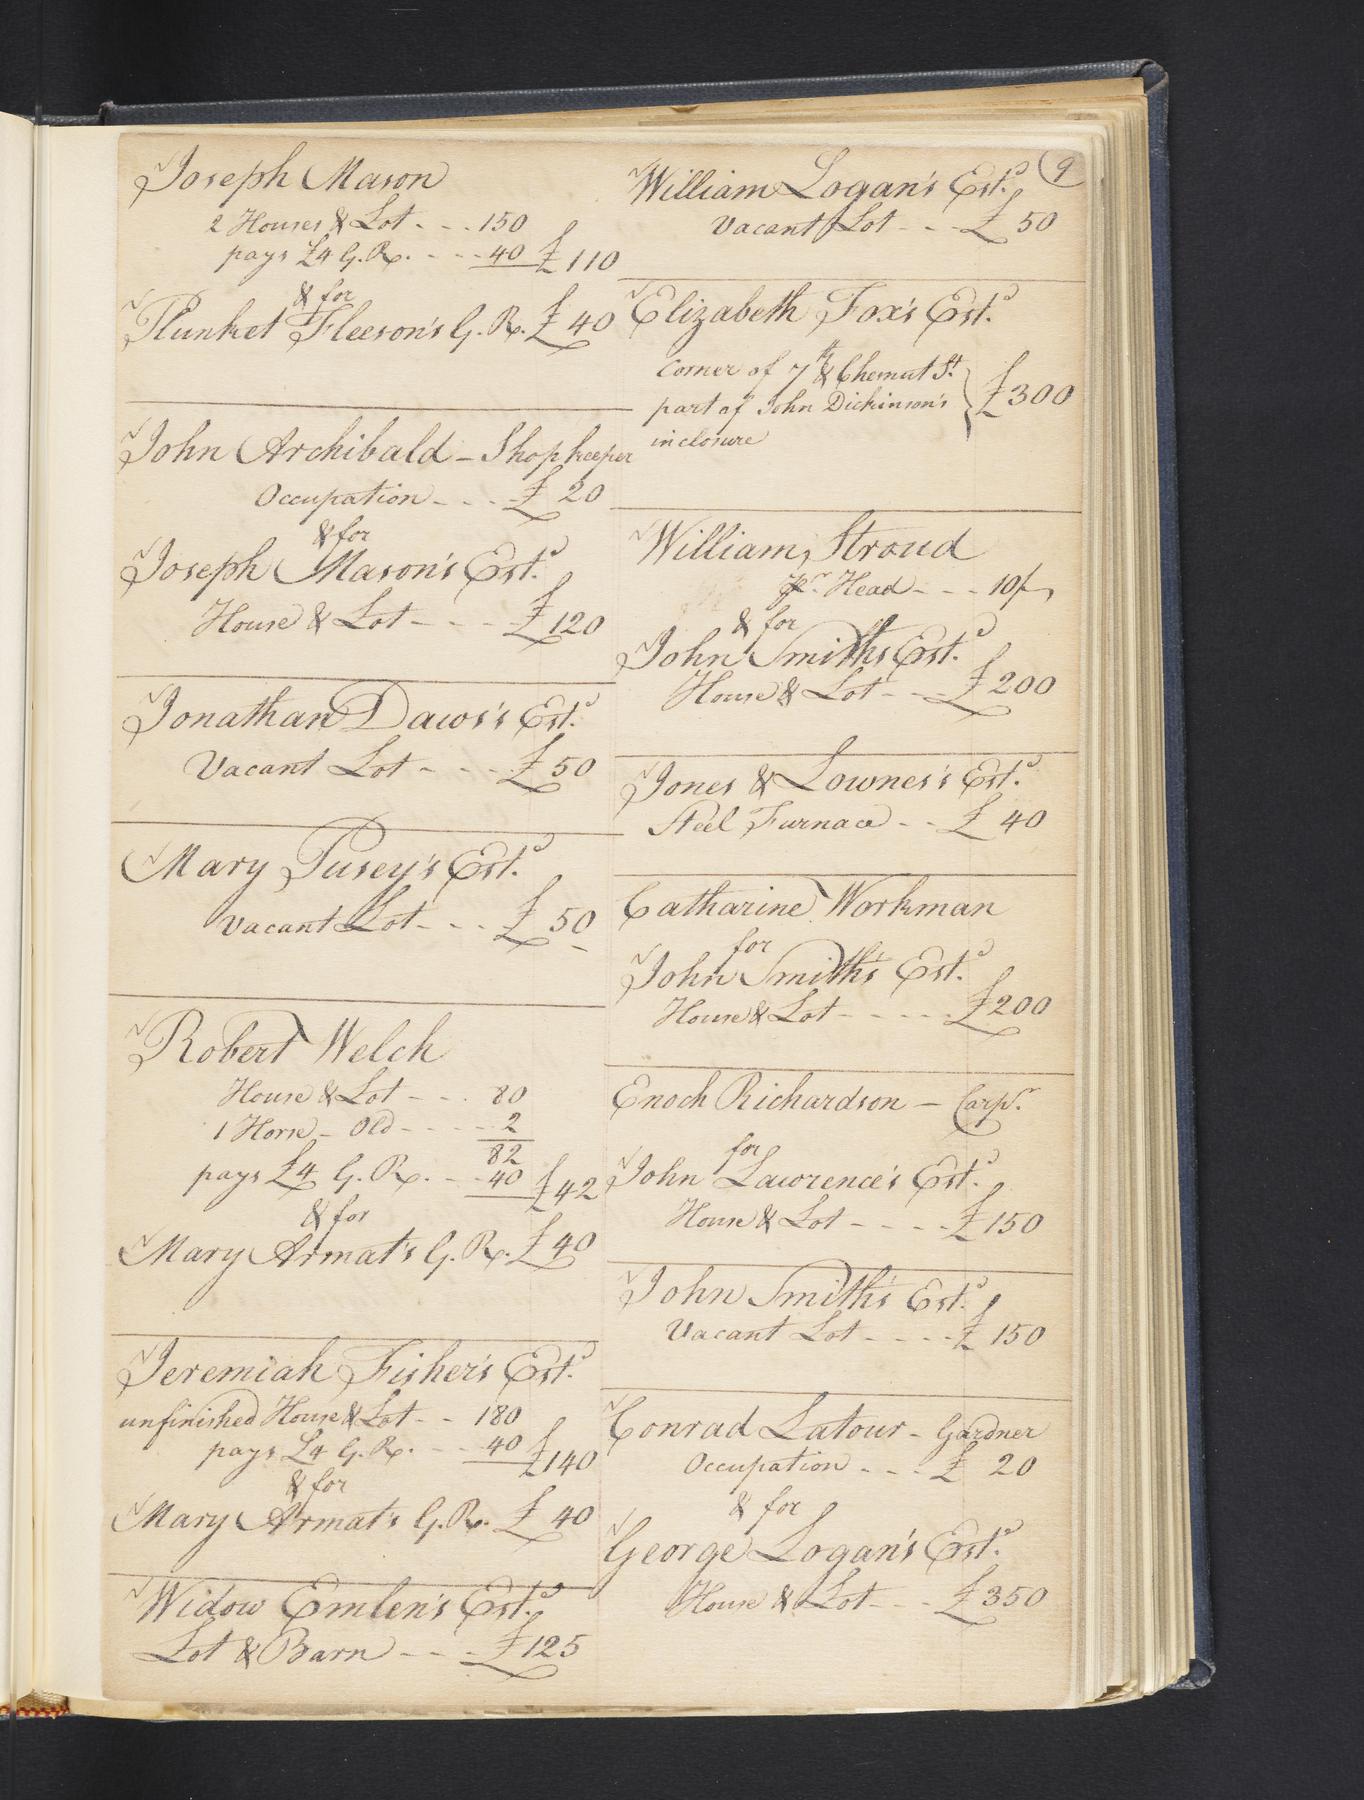 Joseph Mason
2 Houses & Lot - - - 150
pays £4 G. R. - - - 40 £110
& for
Plunket Fleeson's G. R. £40
John Archibald - Shopkeeper
Occupation - - - £20
& for
Joseph Mason's Estd.
House & Lot - - - £120
Jonathan Daws's Estd.
Vacant Lot - - - £50
Mary Pusey's Estd.
Vacant Lot - - - £50
Robert Welch
House & Lot - - - 80
1 Horse - Old - - - - 2
82
pays £4 G. R. - - 40 £42
& for
Mary Armat's G. R. £40
Jeremiah Fisher's Estd.
unfinished House & Lot - - 180
pays £4 G. R. - - - 40 £140
& for
Mary Armat's G. R. £40
Widow Emlen's Estd.
Lot & Barn - - - £125
9
William Logan's Estd.
Vacant Lot - - - £50
Elizabeth Fox's Estd.
Corner of 7th & Chesnut St.
part of John Dickinson's } £300
inclosure
William Stroud
Pr. Head - - - 10/
& for
John Smith's Estd.
House & Lot - - - £200
Jones & Lownes's Estd.
Steel Furnace - - £40
Catharine Workman
for
John Smith's Estd.
House & Lot - - - - - £200
Enoch Richardson - Carpr.
for
John Lawrence's Estd.
House & Lot - - - - £150
John Smith's Estd.
Vacant Lot - - - - £150
Conrad Latour - Gardner
Occupation - - - £20
& for
George Logan's Estd.
House & Lot - - - £350